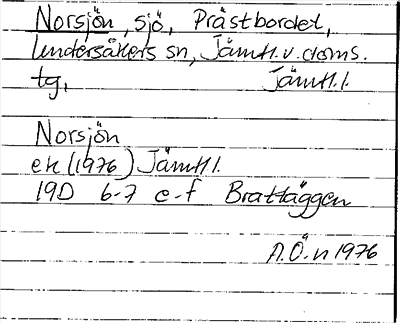 Norsjön, sjö, Prästbordet,
Undersåkers sn, Jämtl.v.doms.
tg, Jämtl.l.
Norsjön
ek (1976) Jämtl l.
19D 6-7 e-f Brattäggen
A.Ö.n 1976